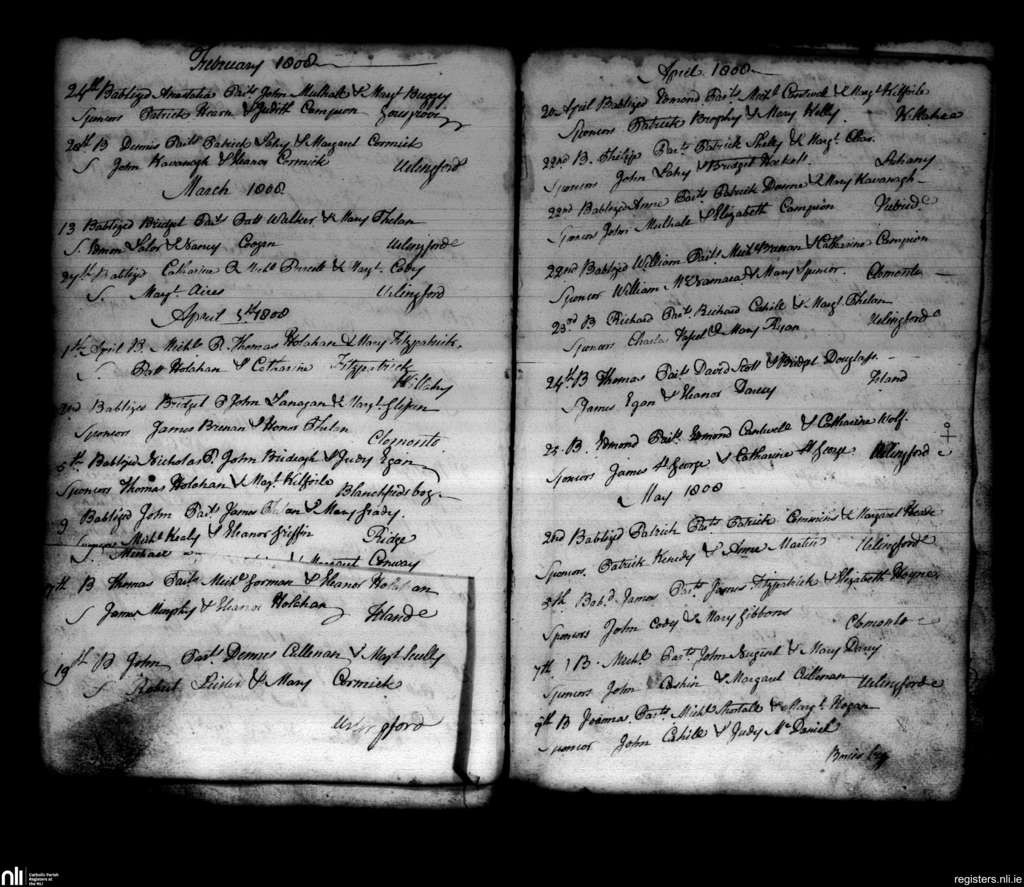 February 1808
24th Babtized Anastatia Parts John Mulhall & Margt Buggy
Sponcors Patrick Hearn & Judith Campion
28th B Dennis Parts Patrick Lahy & Margaret Cormick
S. John Kavanagh & Eleanor Cormick Urlingford
March 1808
13 Babtized Bridget Parts Patt Walker & Mary Phelan
S. Lalor & Nancy Urlingford
27th Babtized Catharine P. Michl & Margt Cody
S. Margt Urlingford
April 1st 1808
1st April B. Michl P. Thomas Holahan & Mary Fitzpatrick.
S. Patt Holahan & Catharine Fitzpatrick
2nd Babtized Bridget P John Lanagan & Margt
Sponcors James Brenan & Honor Phelan
Clomonto
5th Babtized Nicholas P. John & Judy Egan
Sponcors Thomas Holahan & Margt Kilfoile
Blanchfieldsbog.
9 Babtized John Parts James & Mary Grady.
Michl Healy & Eleanor Griffin Ridge
S. Michael & Margaret Conway
B Thomas Parts Michl Gorman & Eleanor Holahan
S James Murphy & Eleanor Holahan Island
19th B John Parts Dennis Cullenan & Margt Scully
S Robert & Mary Cormick
Urlingford
April 1808
20 April Babtized Edmond Parts Michl Cantwell & Margt Kilfoile
Sponcors Patrick Brophy & Mary Kelly.
22nd B. Philip Parts Patrick Shelly & Margt
Sponcors John Lahy & Bridget
22nd Babtized Anne Parts Patrick & Mary Kavanagh
Sponcors John Mulhall & Elizabeth Campion
22nd Babtized William Parts Michl Brenan & Catharine Campion
Sponcor William & Mary Spencor. Clomonto
23rd B Richard Parts Richard Cahill & Margt Phelan
Sponcors Charls & Mary Ryan Urlingford
24th B Thomas Parts David Scott & Bridget Douglass.
S James Egan & Eleanor Darcy Island
25 B. Edmond Parts Edmond Cantwell & Catharine Wolf.
Sponcors James St George & Catharine St George Urlingford
May 1808
2nd Babtized Patrick Parts Patrick & Margaret
Sponcors. Patrick Kenedy & Anne Martin Urlingford
5th Babd James Parts James Fitzpatrick & Elizabeth Hayne
Sponcors John Cody & Mary Gibbons Clomonto
7th B. Michl Parts John Nugent & Mary Darcy
Sponcors John & Margaret Cullenan Urlingford
9th B Parts Michl Shortall & Margt Hogan
Sponcor John Cahill & Judy McDaniel
nli
Catholic Parish
Registers at
the NLI
registers.nli.ie